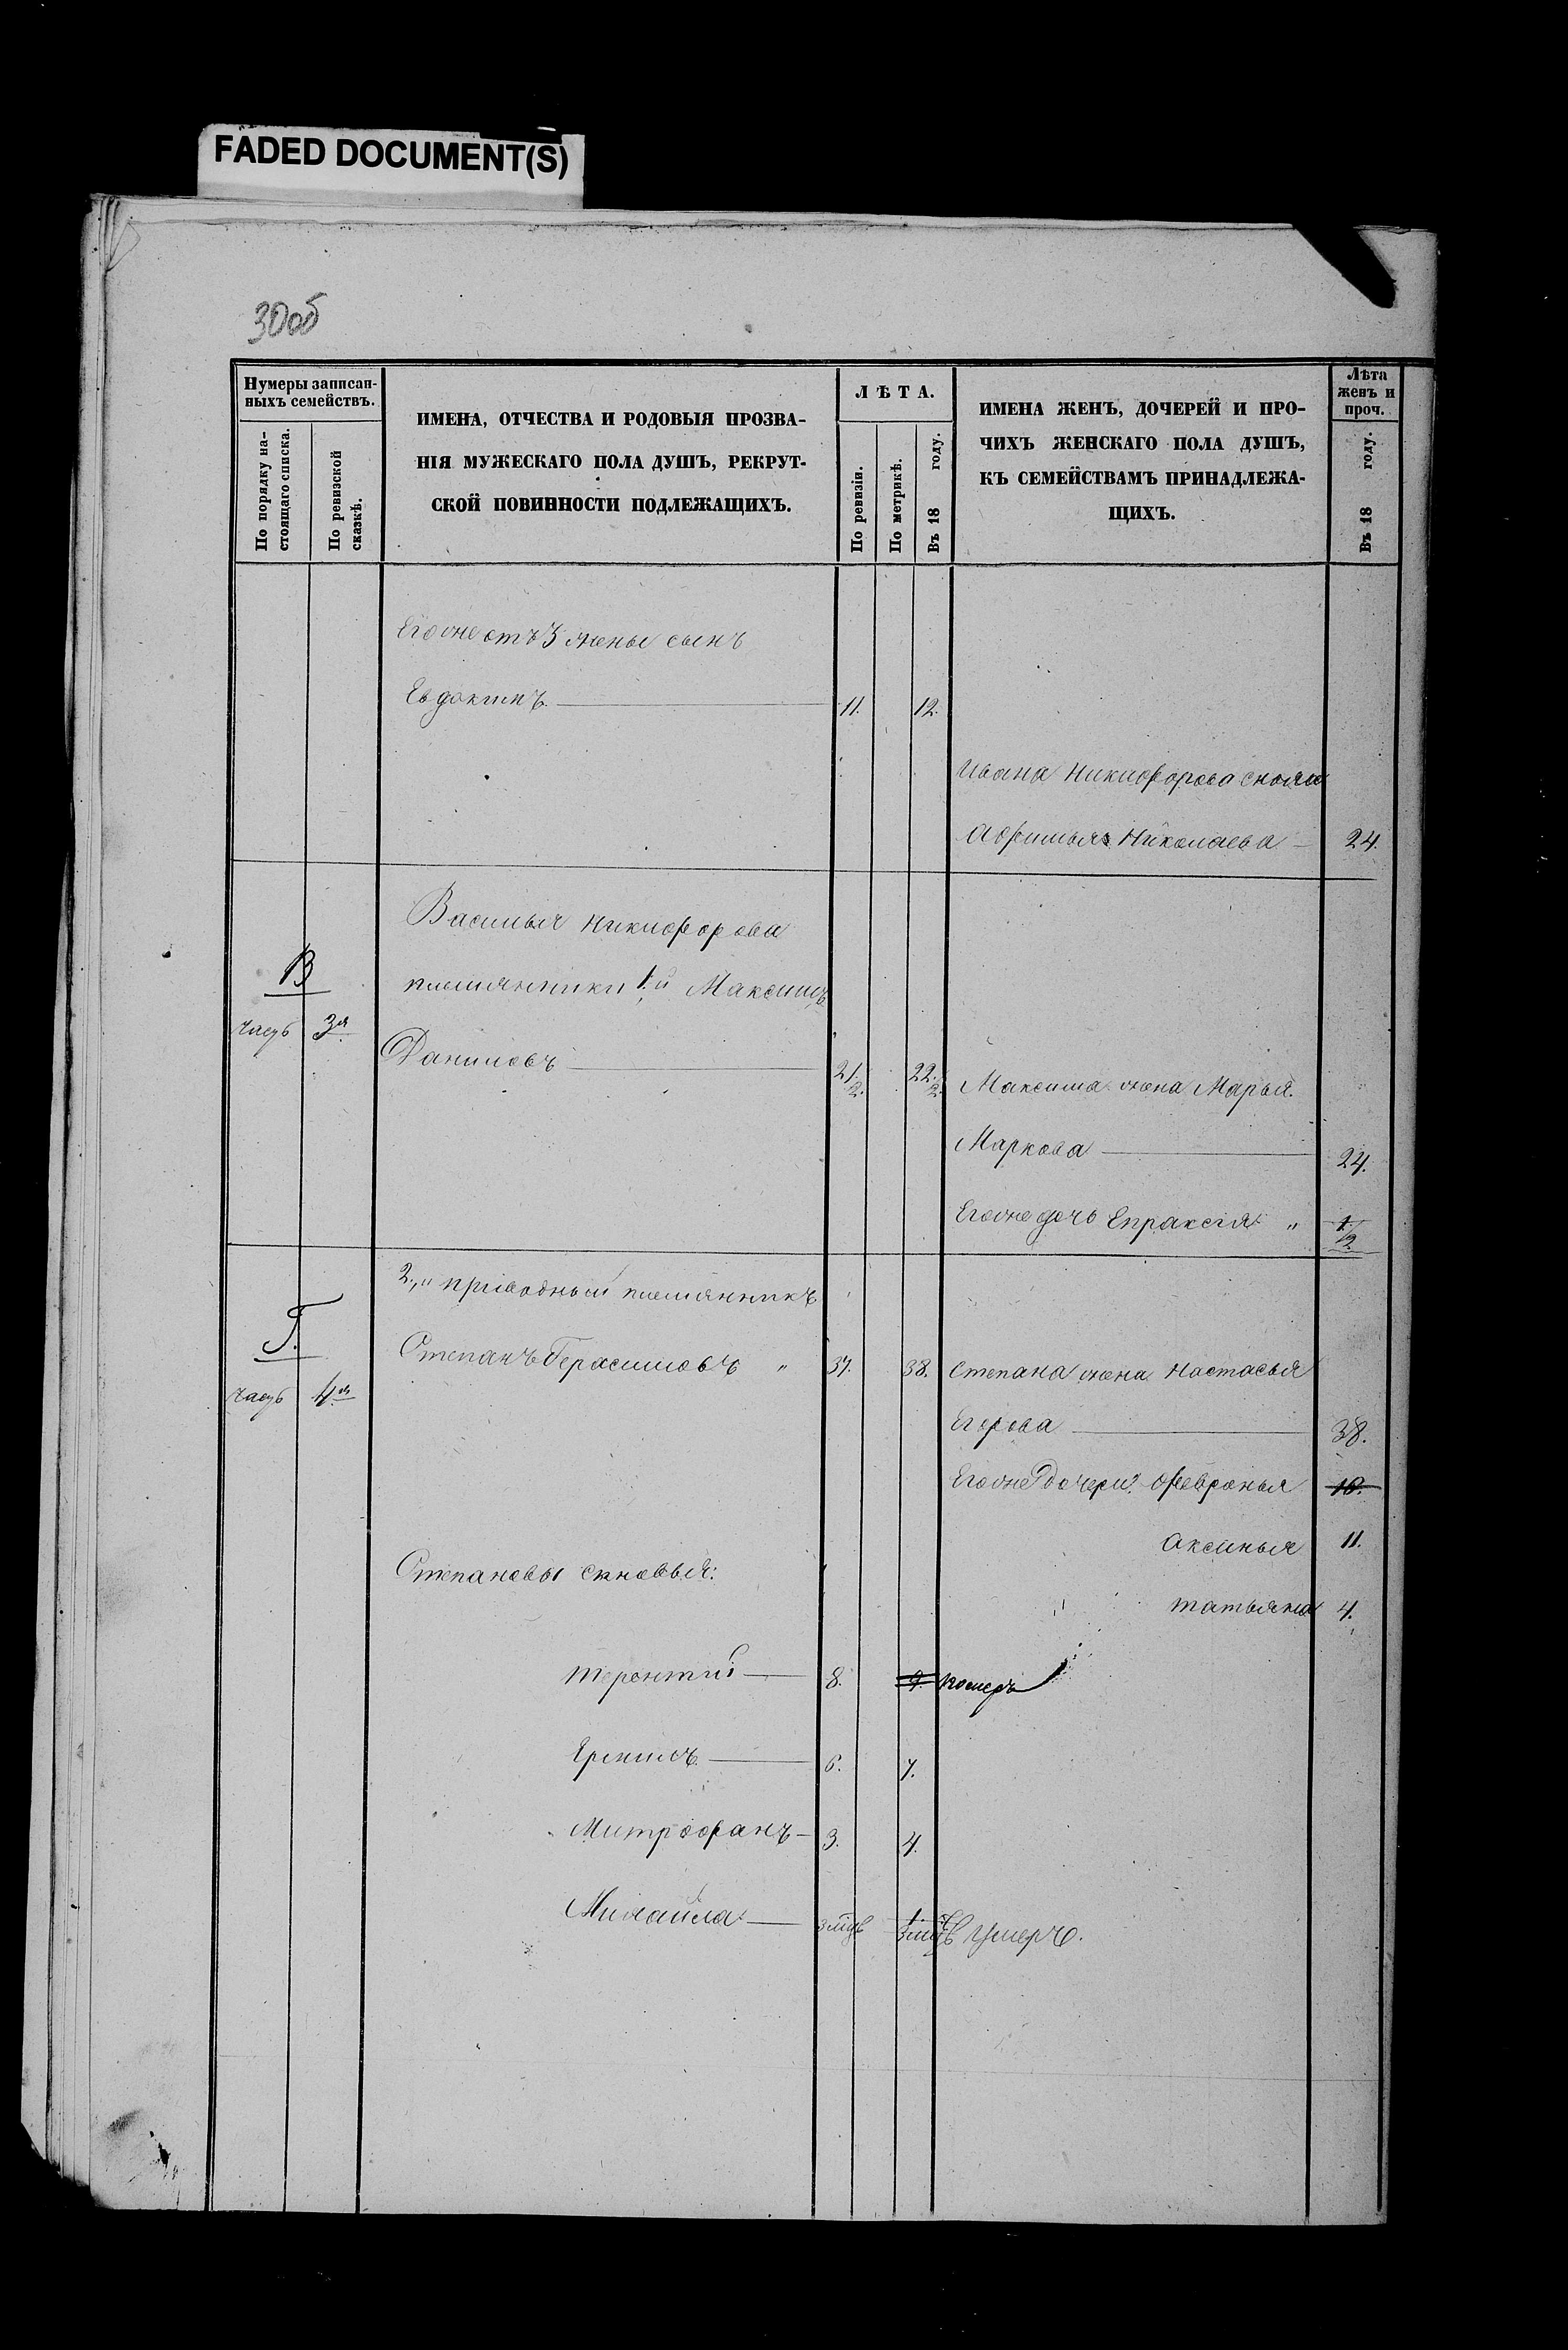 FADED DOCUMENT(S)
30об
Нумеры записан-
ныхъ семействъ.
По порядку на-
стоящаго списка.
По ревизской
сказкѣ.
ИМЕНА, ОТЧЕСТВА И РОДОВЫЯ ПРОЗВА-
НІЯ МУЖЕСКАГО ПОЛА ДУШЪ, РЕКРУТ-
СКОЙ ПОВИННОСТИ ПОДЛЕЖАЩИХЪ.
ЛѢТА.
По ревизіи.
По метрикѣ.
Въ 18 году.
ИМЕНА ЖЕНЪ, ДОЧЕРЕЙ И ПРО-
ЧИХЪ ЖЕНСКАГО ПОЛА ДУШЪ,
КЪ СЕМЕЙСТВАМЪ ПРИНАДЛЕЖА-
ЩИХЪ.
Лѣта
женъ и
проч.
Въ 18 году.
Егоже отъ 3 жены сынъ
Евдокимъ 11. 12.
Ивана Никифорова сноха
Афимья Николаева 24.
Василья Никифорова
В
племянники 1.й Максимъ
часть 3я
Даниловъ 21. 2. 22. 2.
Максима жена Марья
Маркова 24.
Егоже дочь Епраксия " 1/2.
2., " племянникъ
Г.
Степанъ Герасимовъ " 37. 38. Степана жена Настасья
часть 4я
Егорова 38.
Егоже дочери: Февронья 18.
Аксинья 11.
Степановы сыновья:
татьяна 4.
терентий 8. 9. померъ
6. 7.
Митрофанъ 3. 4.
Михайла умеръ.